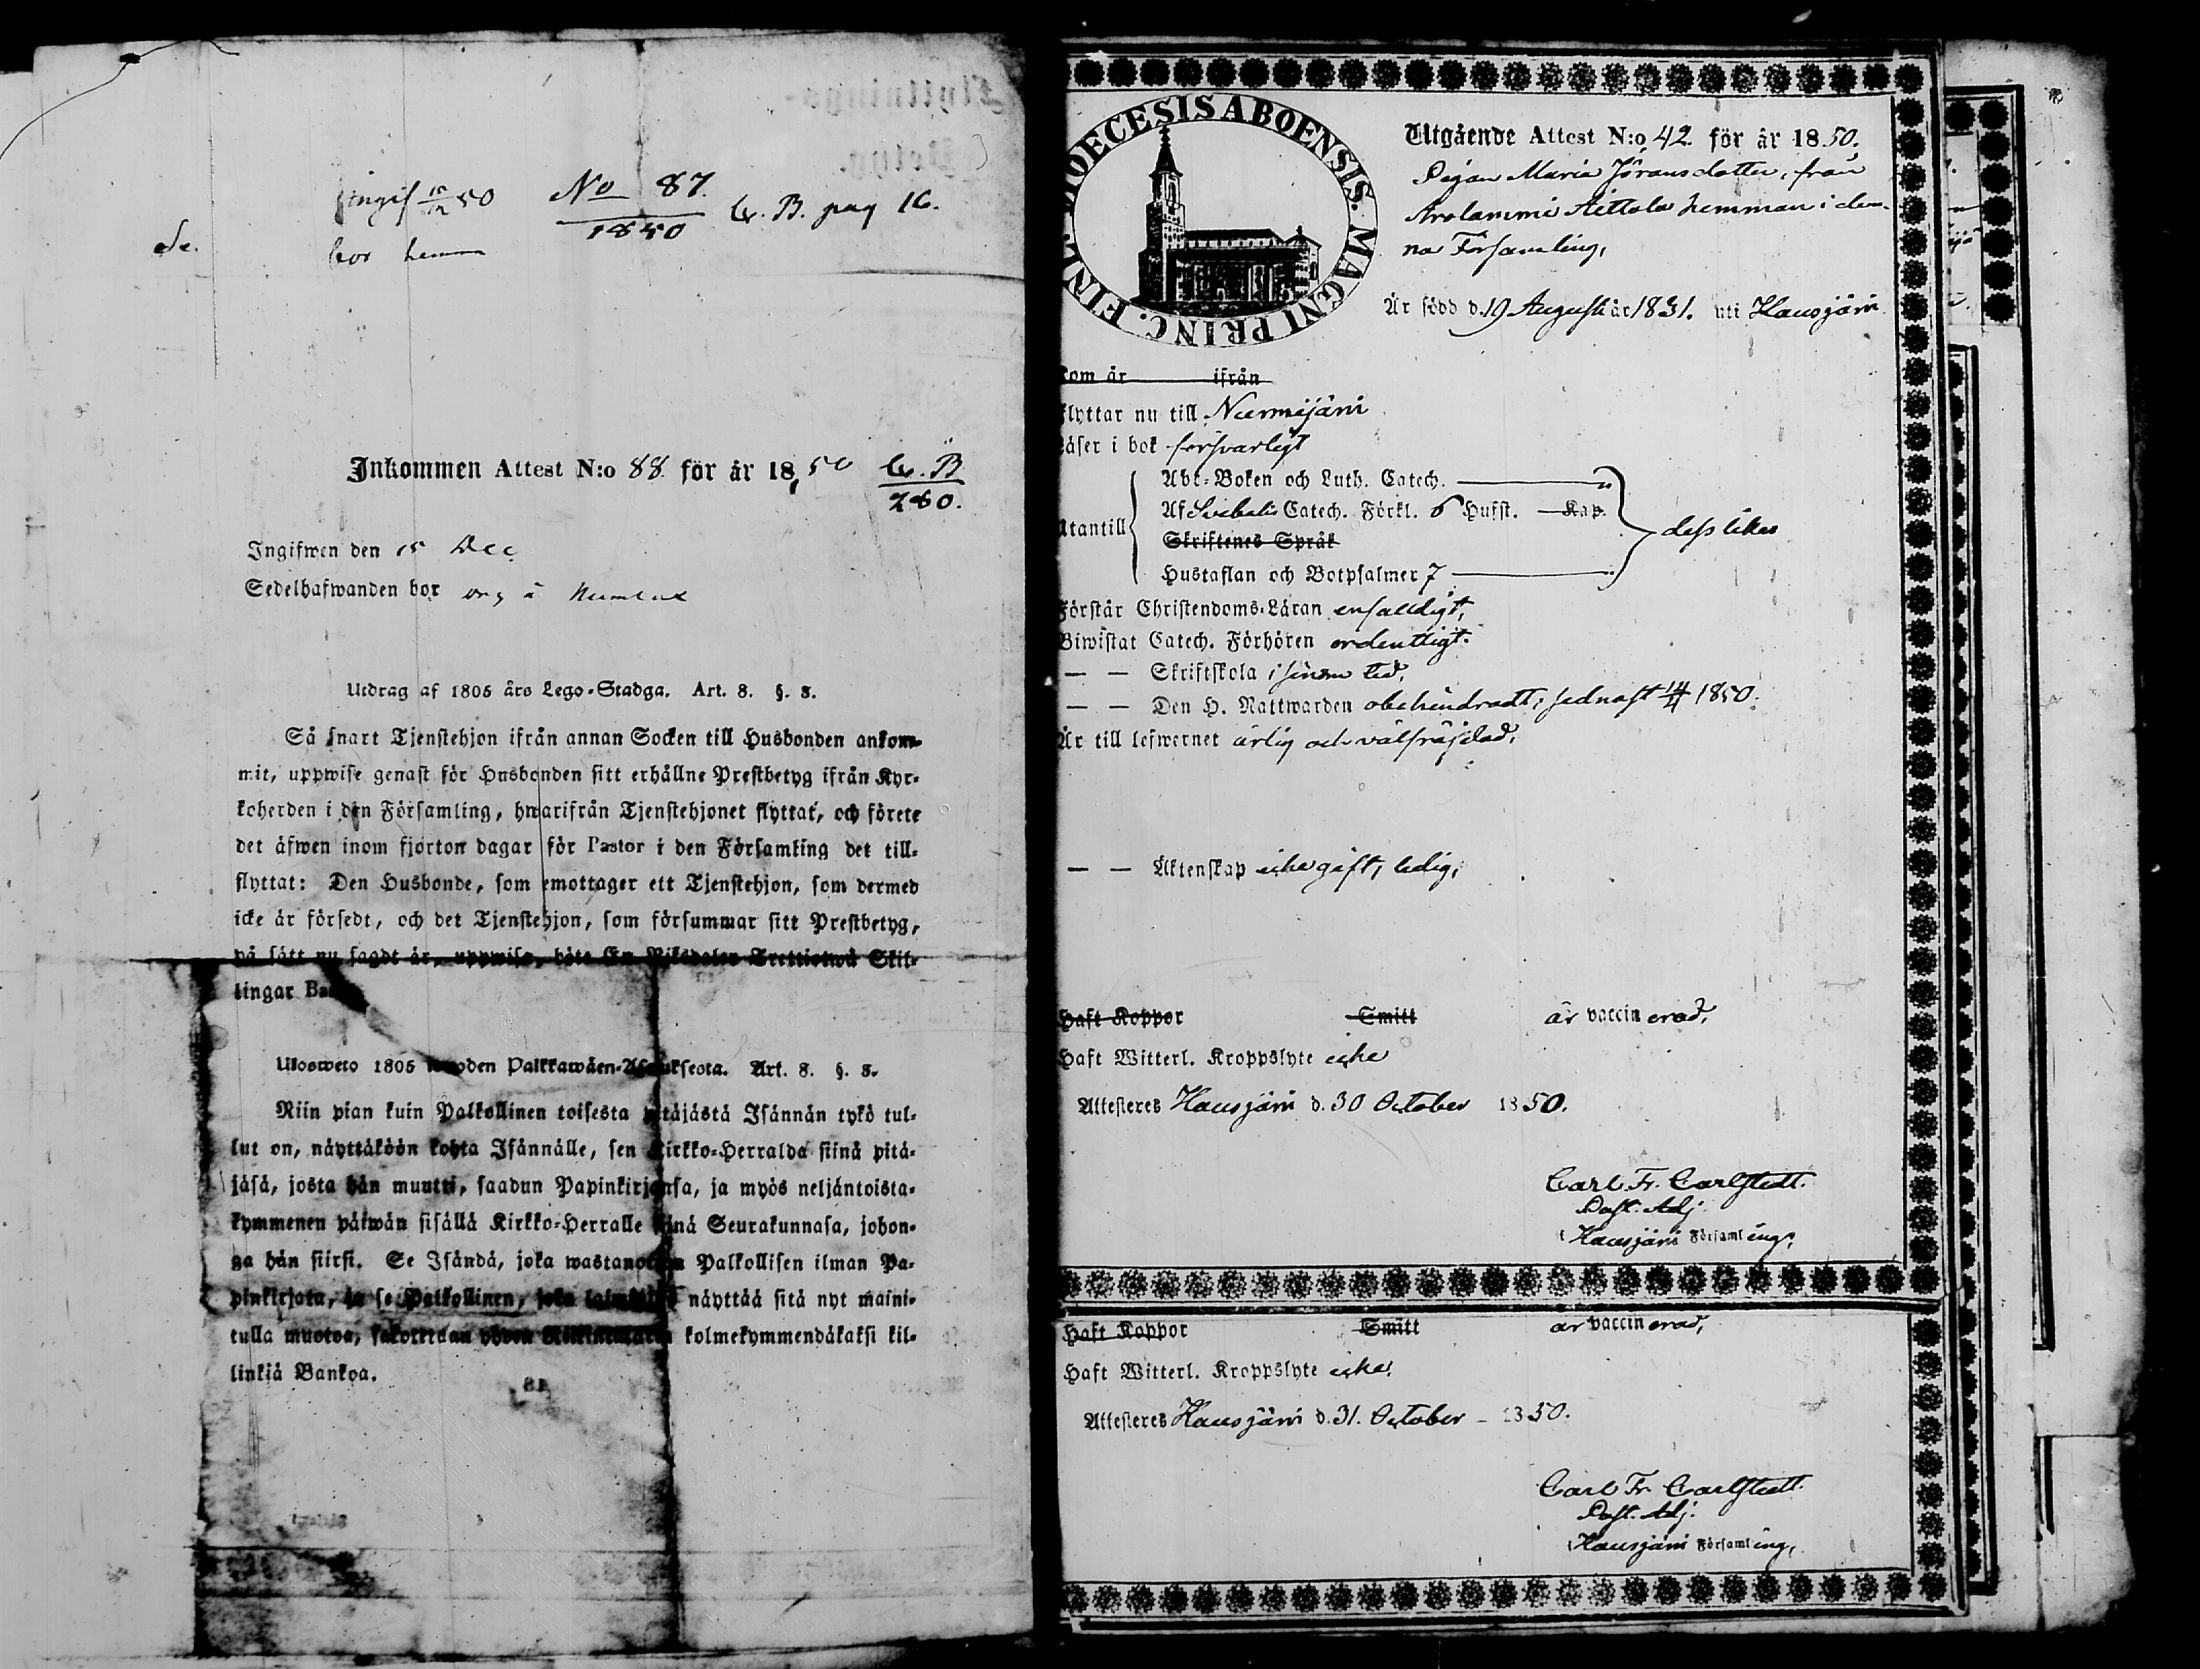 Ingif 15/12 50
No 87.
1850
C. B. pag 16.
bor hemma
Inkommen Attest N:o 88 för år 1850
C. B.
260.
Ingifwen den 15 Dec
Sedelhafwanden bor
Utdrag af 1805 års Lego-Stadga. Art. 8. §. 8.
Så snart Tjenstehjon ifrån annan Socken till Husbonden ankom-
mit, uppwise genast för Husbonden sitt erhållne Prestbetyg ifrån Kyr-
koherden i den Församling, hwarifrån Tjenstehjonet flyttat, och förete
det äfwen inom fjorton dagar för Pastor i den Församling det till-
flyttat: Den Husbonde, som emottager ett Tjenstehjon, som dermed
icke är försedt, och det Tjenstehjon, som försummar sitt Prestbetyg,
på sätt nu sagdt är, uppwisa, böte En Riksdaler Trettiotwå Skil-
lingar
Ulosweto 1805 Palkkawäen- Art. 8. §. 8.
Niin pian kuin Palkollinen toisesta pitäjästä Isännän tykö tul-
lut on, näyttäköön kohta Isännälle, sen Kirkko-Herralda siinä pitä-
jäsä, josta hän muutti, saadun Papinkirjansa, ja myös neljäntoista-
kymmenen päiwän sisällä Kirkko-Herralle siinä Seurakunnasa, johon-
ga hän siirsi. Se Isändä, joka wastanottaa Palkollisen ilman Pa-
pinkirjata, ja se Palkollinen, joka näyttää sitä nyt maini-
tulla muotoa, kolmekymmendäkaksi kil-
linkiä Bankoa.
DIOECESIS ABOENSIS. MAGNI PRINC. FINL.
Utgående Attest N:o 42. för år 1850.
Pigan Maria Jöransdotter, från
Arolammi Aittola hemman i den-
na Församling,
Är född d. 19 Augusti år 1831. uti Hausjärvi
kom år ifrån
flyttar nu till Nurmijärvi
Läser i bok försvarligt
Utantill
Abc-Boken och Luth. Catech.
Af Svebelii Catech. Förkl. 6 Hufst. Kap.
Skriftenes Språk
Hustaflan och Botpsalmer 7
dess likes
Förstår Christendoms-Läran enfaldigt,
Biwistat Catech. Förhören ordentligt.
— — Skriftskola i sinom tid,
— — Den H. Nattwarden obehindradt, sednast 14/4 1850.
Är till lefwernet ärlig och välfräjdad,
— — Äktenskap icke gift, ledig,
Haft Koppor Smitt är vaccinerad,
Haft Witterl. Kroppslyte icke
Attesteres Hausjärvi d. 30 October 1850.
Carl Fr. Carlstedt.
Past. Adj.
i Hausjärvi Församling,
Haft Koppor Smitt är vaccinerad,
Haft Witterl. Kroppslyte icke,
Attesteres Hausjärvi d. 31. October – 1850.
Carl Fr. Carlstedt.
Past. Adj.
i Hausjärvi Församling,